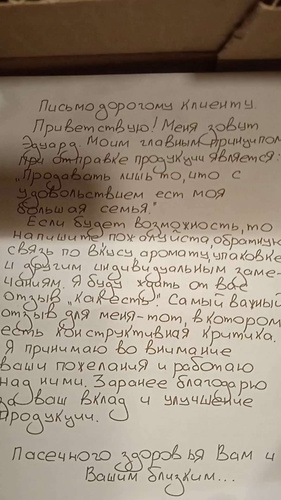 Письмо дорогому клиенту.
Приветствую! Меня зовут
Эдуард. Моим главным принципом
при отправке продукции является:
„Продавать лишь то, что с
удовольствием ест моя
большая семья."
Если будет возможность, то
напишите пожалуйста, обратную
связь по вкусу аромату упаковке
и другим индивидуальным заме-
чаниям. Я буду ждать от вас
отзыв „как есть". Самый важный
отзыв для меня-тот, в котором
есть конструктивная критика.
Я принимаю во внимание
ваши пожелания и работаю
над ними. Заранее благодарю
за ваш вклад и улучшение
продукции.
Пасечного здоровья Вам и
Вашим близким...